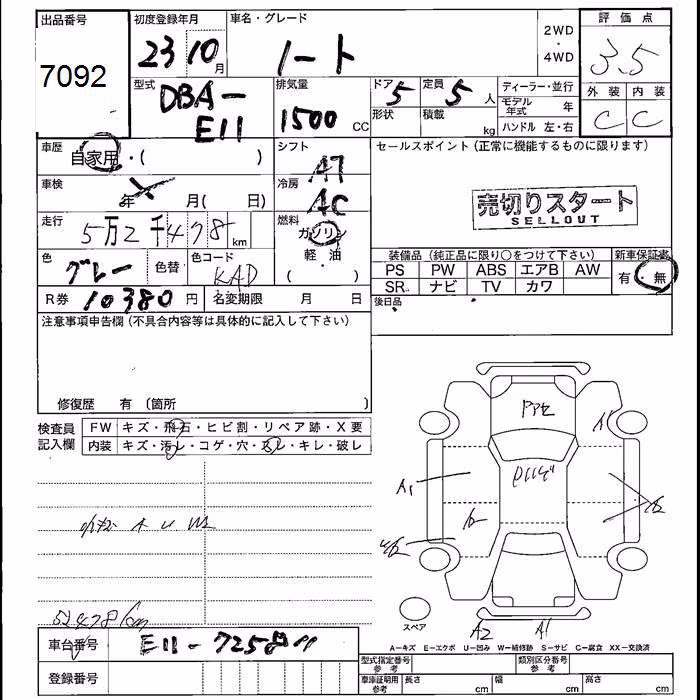 出品番号
7092
初度登録年月
23 10月
車名・グレード
ノート
2WD
・
4WD
評価点
3.5
外装 内装
C C
型式
DBA-
E11
排気量
1500 CC
ドア 5
定員 5 人
形状
積載 kg
ディーラー・並行
モデル年式 年
ハンドル 左・右
車歴
自家用・( )
シフト
AT
セールスポイント(正常に機能するものに限ります)
車検
年 月( 日)
冷房
AC
売切りスタート
SELLOUT
走行
5万2千478km
燃料
ガソリン
軽・油
( ・ )
色
グレー
色替
色コード
KAD
装備品(純正品に限り○をつけて下さい)
新車保証書
PS PW ABS エアB AW
有・無
SR ナビ TV カワ
R券 10380円
名変期限 月 日
後日品
注意事項申告欄(不具合内容等は具体的に記入して下さい)
修復歴 有 (箇所
検査員記入欄
FW キズ・飛石・ヒビ割・リペア跡・X要
内装 キズ・汚レ・コゲ・穴・スレ・キレ・破レ
A U W
52478km
A1
A1
A2 A1
スペア
車台番号
A−キズ E−エクボ U−凹み W−補修跡 S−サビ C−腐食 XX−交換済
登録番号
型式指定番号 参考
類別区分番号 参考
車庫証明用 参考
長さ cm
幅 cm
高さ cm